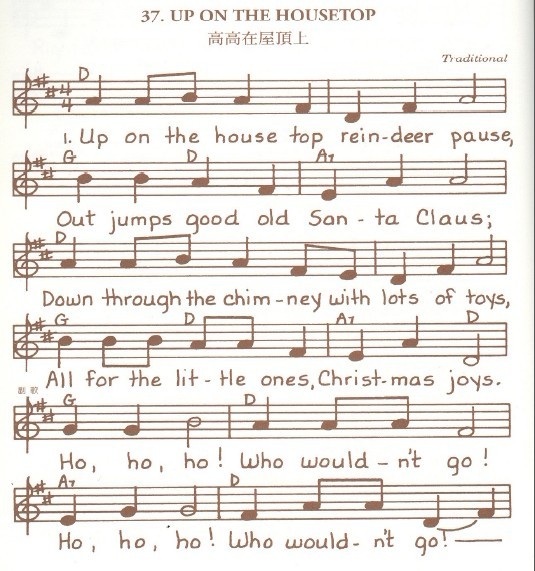 37. UP ON THE HOUSETOP
高高在屋頂上
Traditional
D
1. Up on the house top rein-deer pause,
G D A7
Out jumps good old San - ta Claus;
D
Down through the chim - ney with lots of toys,
G D A7 D
All for the lit - tle ones, Christ-mas joys.
副歌
G D
Ho, ho, ho! Who would - n't go!
A7 D
Ho, ho, ho! Who would- n't go!